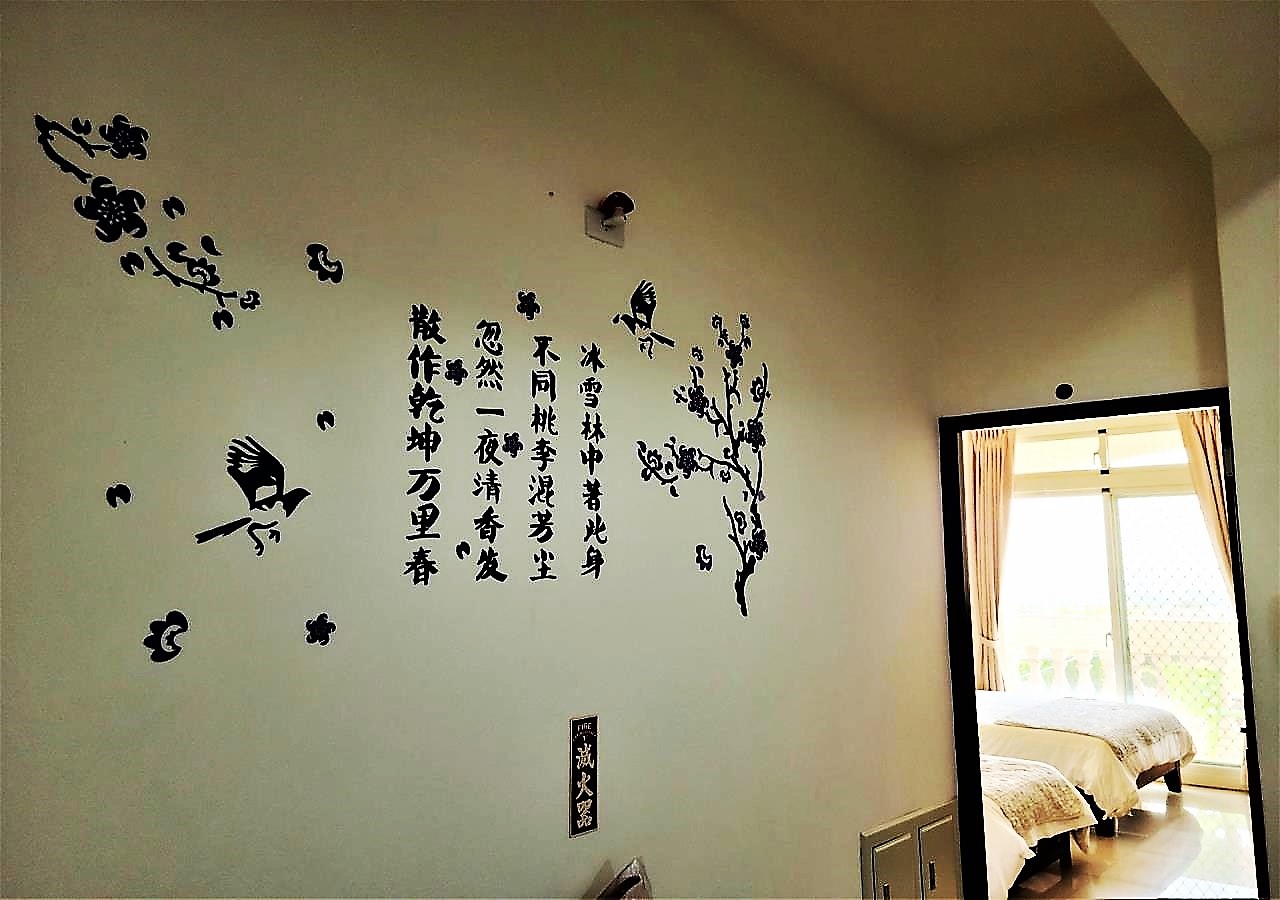 冰雪林中著此身
不同桃李混芳尘
忽然一夜清香发
散作乾坤万里春
FIRE
滅火器